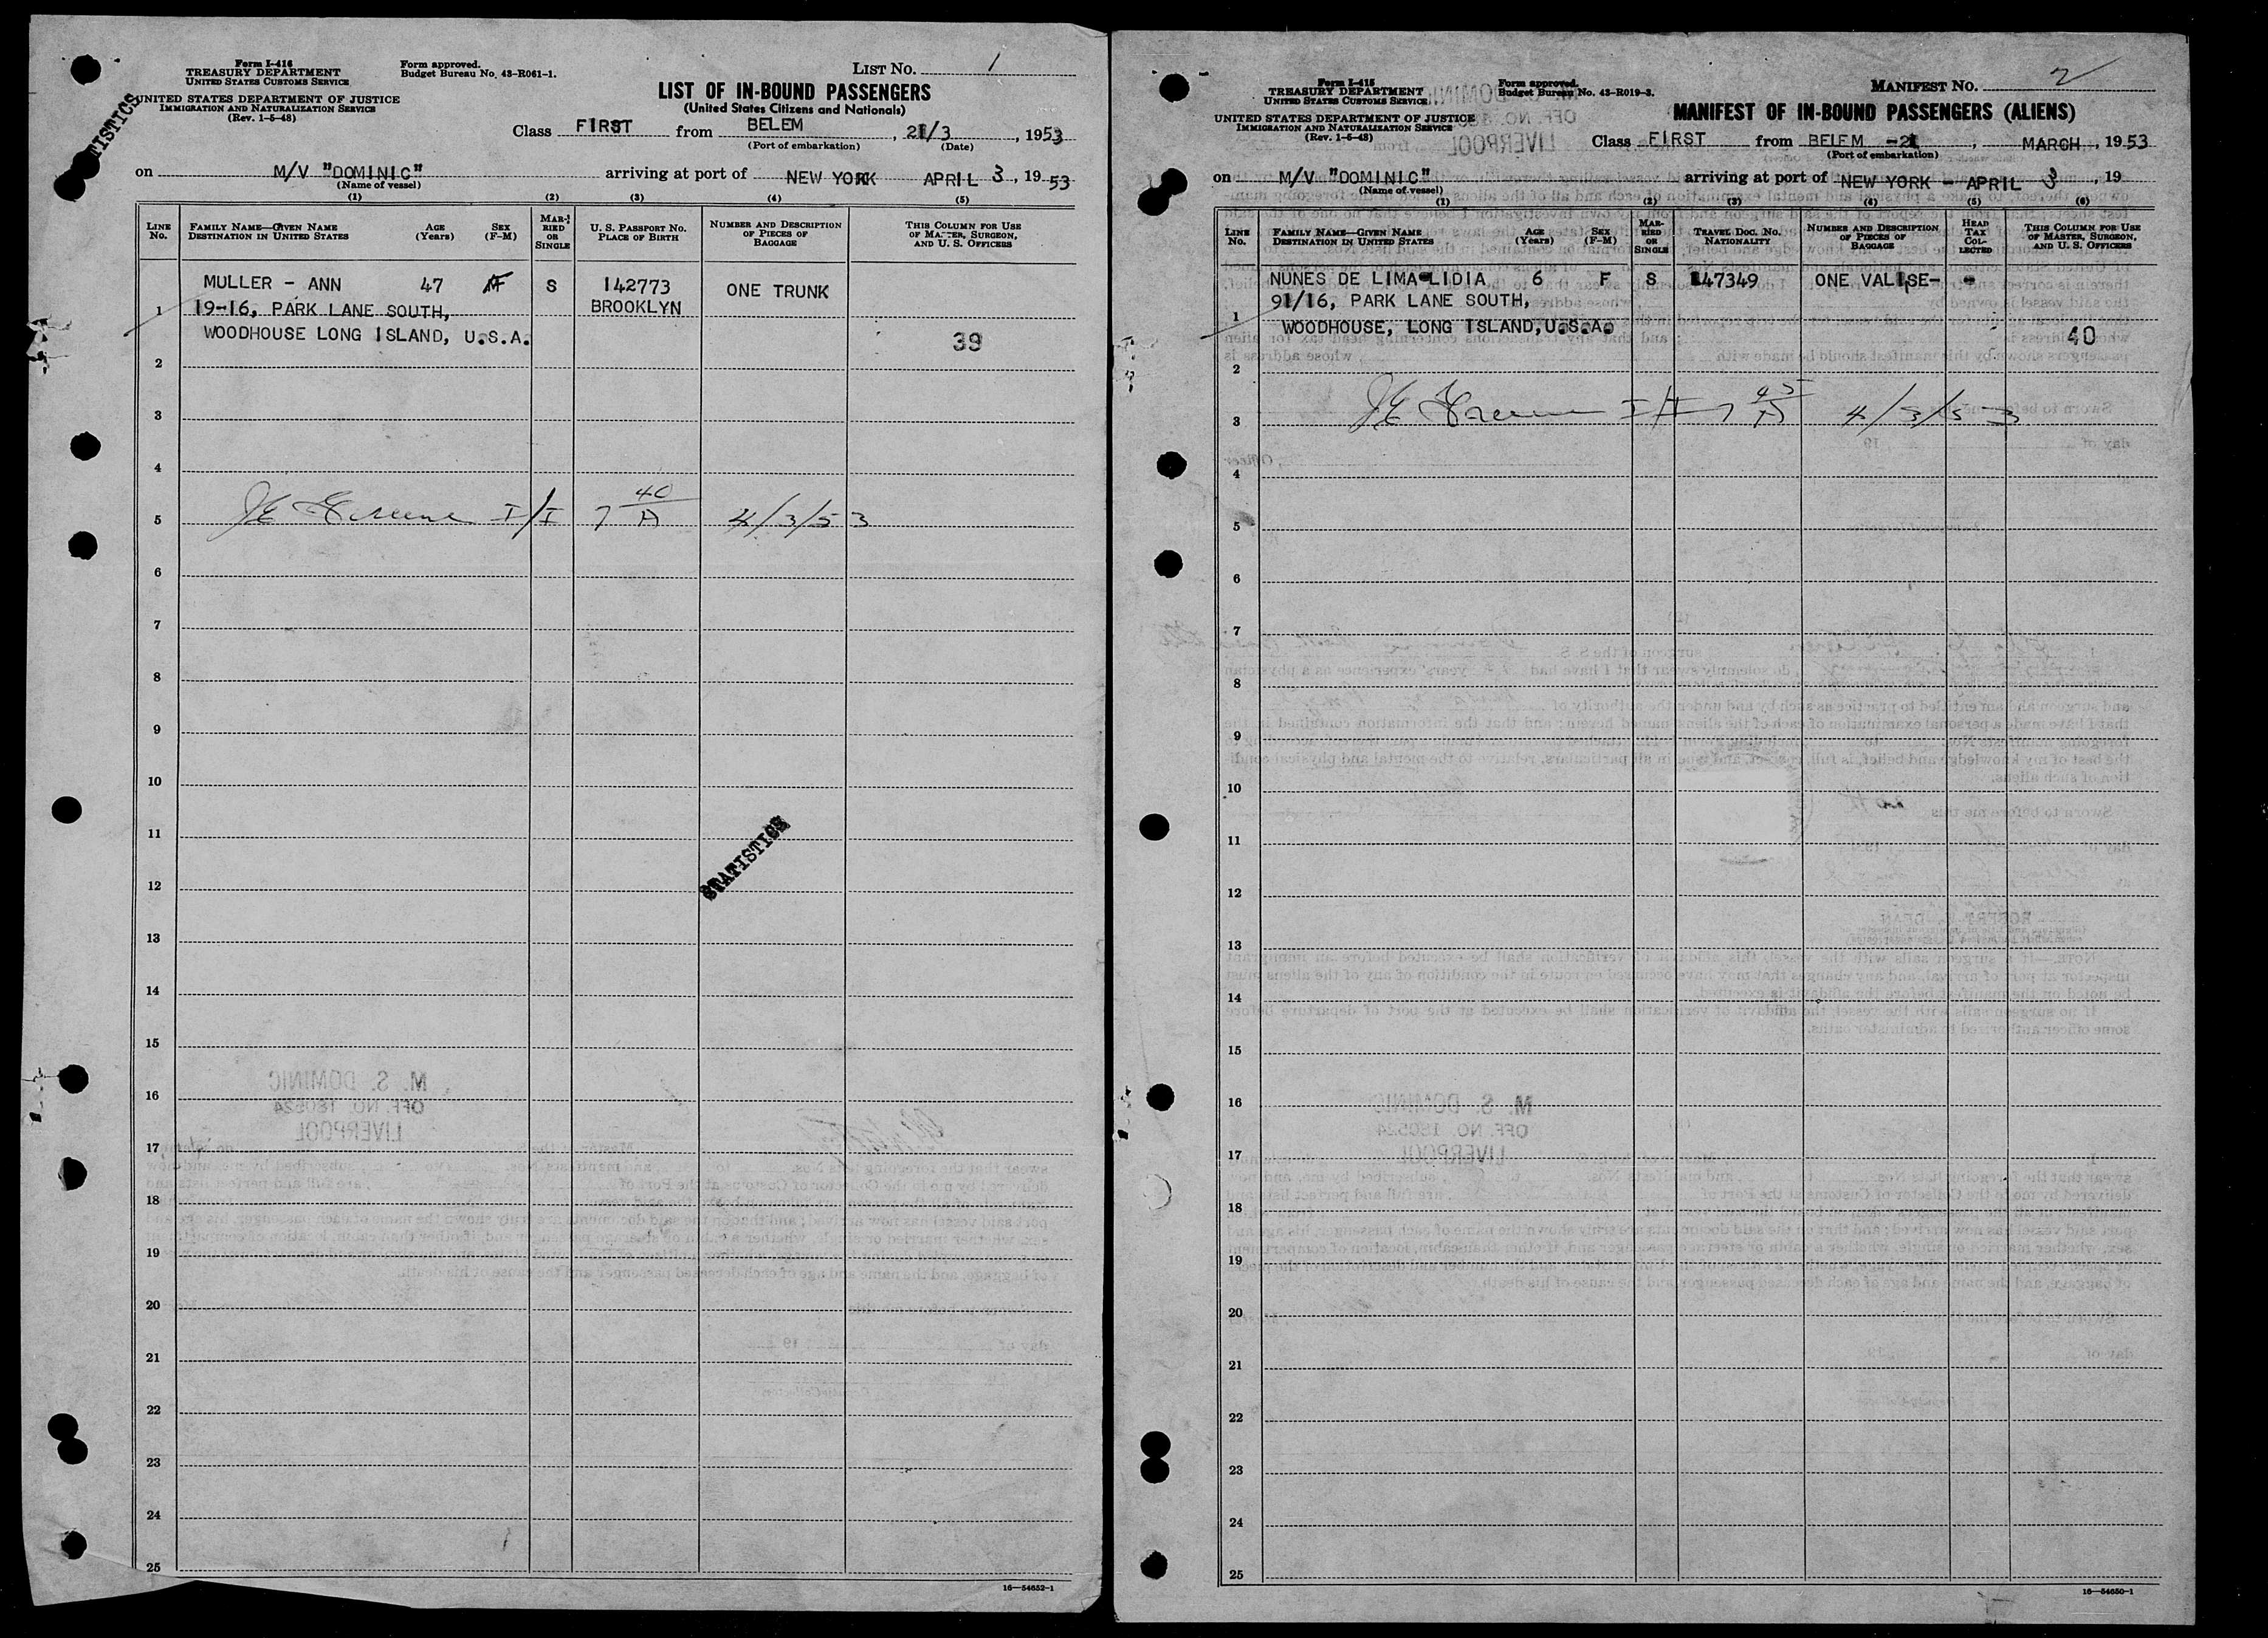 Form I-416
TREASURY DEPARTMENT
UNITED STATES CUSTOMS SERVICE
UNITED STATES DEPARTMENT OF JUSTICE
IMMIGRATION AND NATURALIZATION SERVICE
(Rev. 1-5-48)
Form approved.
Budget Bureau No. 43-R061-1.
LIST NO. 1
LIST OF IN-BOUND PASSENGERS
(United States Citizens and Nationals)
Class FIRST from BELEM , 21/3 , 1953
(Port of embarkation) (Date)
on M/V "DOMINIC" arriving at port of NEW YORK APRIL 3 , 1953
(Name of vessel)
(1) (2) (3) (4) (5)
LINE No. FAMILY NAME—GIVEN NAME DESTINATION IN UNITED STATES AGE (Years) SEX (F-M) MARRIED OR SINGLE U. S. PASSPORT No. PLACE OF BIRTH NUMBER AND DESCRIPTION OF PIECES OF BAGGAGE THIS COLUMN FOR USE OF MASTER, SURGEON, AND U. S. OFFICERS
MULLER - ANN 47 F S 142773 ONE TRUNK
1 19-16, PARK LANE SOUTH, BROOKLYN
WOODHOUSE LONG ISLAND, U.S.A. 39
2
3
4
5 I/I 7 40/A 4/3/53
6
7
8
9
10
11
STATISTICS
12
13
14
15
16
17
18
19
20
21
22
23
24
25
16—54652-1
Form I-415
TREASURY DEPARTMENT
UNITED STATES CUSTOMS SERVICE
UNITED STATES DEPARTMENT OF JUSTICE
IMMIGRATION AND NATURALIZATION SERVICE
(Rev. 1-5-48)
Form approved.
Budget Bureau No. 43-R019-3.
MANIFEST NO. 2
MANIFEST OF IN-BOUND PASSENGERS (ALIENS)
Class FIRST from BELEM -21 , MARCH , 1953
(Port of embarkation)
on M/V "DOMINIC" arriving at port of NEW YORK - APRIL 3 , 19
(Name of vessel)
(1) (2) (3) (4) (5) (6)
LINE No. FAMILY NAME—GIVEN NAME DESTINATION IN UNITED STATES AGE (Years) SEX (F-M) MARRIED OR SINGLE TRAVEL DOC. No. NATIONALITY NUMBER AND DESCRIPTION OF PIECES OF BAGGAGE HEAD TAX COLLECTED THIS COLUMN FOR USE OF MASTER, SURGEON, AND U. S. OFFICERS
NUNES DE LIMA-LIDIA 6 F S 147349 ONE VALISE- -
91/16, PARK LANE SOUTH,
1
WOODHOUSE, LONG ISLAND, U.S.A. 40
2
3 I/I 7 45/A 4/3/53
4
5
6
7
8
9
10
11
12
13
14
15
16
17
18
19
20
21
22
23
24
25
16—54650-1